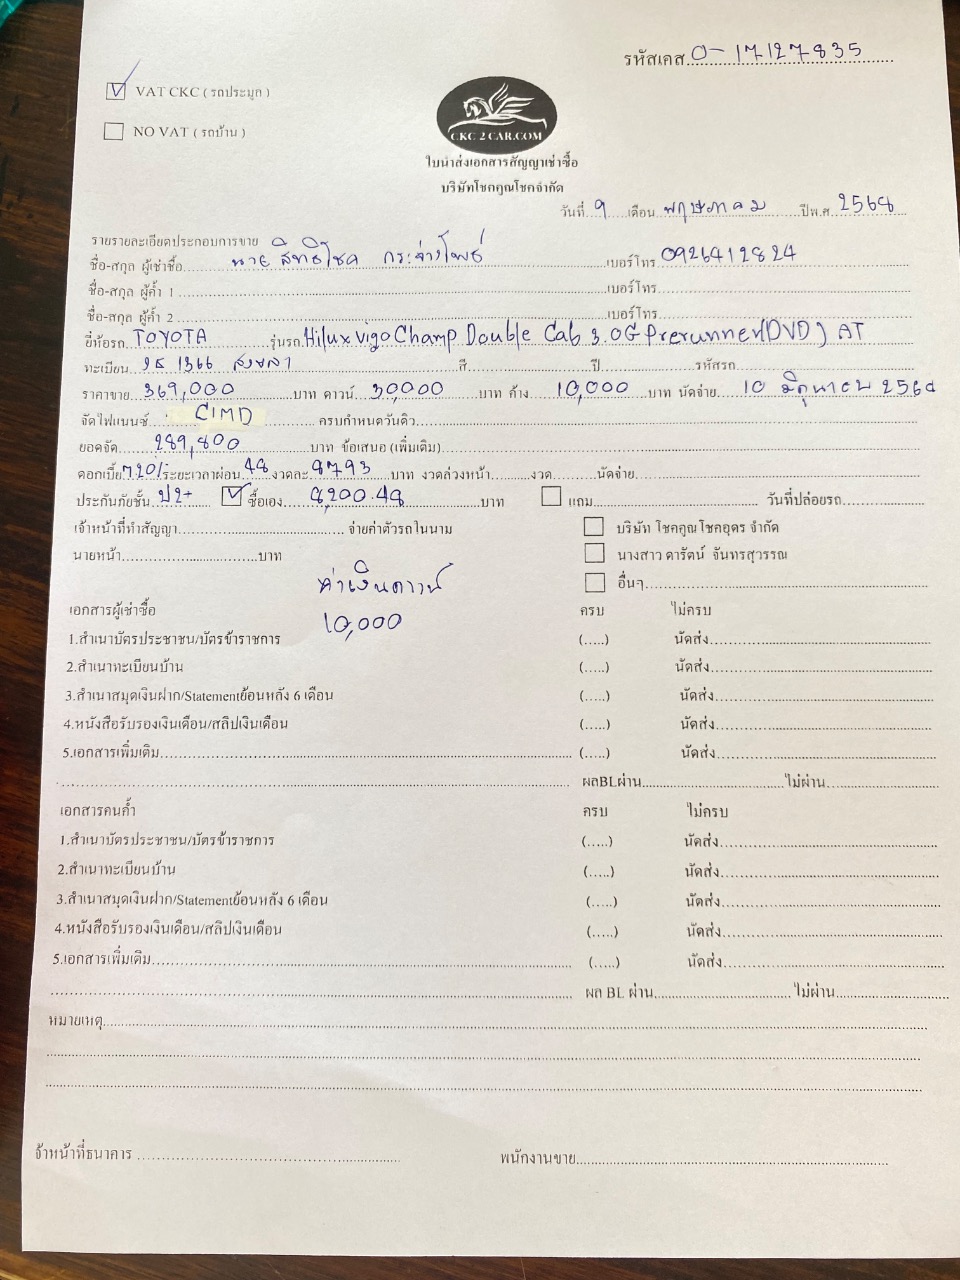 รหัสเคส 0-17127835
VAT CKC ( รถประมูก )
NO VAT ( รถบ้าน )
CKC 2 CAR.COM
ใบนำส่งเอกสารสัญญาเช่าซื้อ
บริษัทโชคคูณโชคจำกัด
วันที่ 9 เดือน พฤษภาคม ปีพ.ศ. 2564
รายรายละเอียดประกอบการขาย
ชื่อ-สกุล ผู้เช่าซื้อ นาย สิทธิโชค กระจ่างโพธิ์ เบอร์โทร 0926412824
ชื่อ-สกุล ผู้ค้ำ 1 เบอร์โทร
ชื่อ-สกุล ผู้ค้ำ 2 เบอร์โทร
ยี่ห้อรถ TOYOTA รุ่นรถ Hilux Vigo Champ Double Cab 3.0G Prerunner(DVD) AT
ทะเบียน 1366 สงขลา สี ปี รหัสรถ
ราคาขาย 369,000 บาท ดาวน์ 30,000 บาท ค้าง 10,000 บาท นัดจ่าย 10 มิถุนายน 2564
จัดไฟแนนซ์ CIMB ครบกำหนดวันดิว
ยอดจัด 289,800 บาท ข้อเสนอ (เพิ่มเติม)
ดอกเบี้ย 7.20/ ระยะเวลาผ่อน 48 งวดละ 8793 บาท งวดล่วงหน้า งวด นัดจ่าย
ประกันภัยชั้น ป2+ ซื้อเอง 8,200.48 บาท แถม วันที่ปล่อยรถ
เจ้าหน้าที่ทำสัญญา จ่ายค่าตัวรถในนาม บริษัท โชคคูณโชคอุดร จำกัด
นายหน้า บาท นางสาว ดารัตน์ จันทรสุวรรณ
ค่าเงินดาวน์ อื่นๆ
10,000
เอกสารผู้เช่าซื้อ ครบ ไม่ครบ
1.สำเนาบัตรประชาชน/บัตรข้าราชการ (.....) นัดส่ง
2.สำเนาทะเบียนบ้าน (.....) นัดส่ง
3.สำเนาสมุดเงินฝาก/Statementย้อนหลัง 6 เดือน (.....) นัดส่ง
4.หนังสือรับรองเงินเดือน/สลิปเงินเดือน (.....) นัดส่ง
5.เอกสารเพิ่มเติม (.....) นัดส่ง
ผลBLผ่าน ไม่ผ่าน
เอกสารคนค้ำ ครบ ไม่ครบ
1.สำเนาบัตรประชาชน/บัตรข้าราชการ (.....) นัดส่ง
2.สำเนาทะเบียนบ้าน (.....) นัดส่ง
3.สำเนาสมุดเงินฝาก/Statementย้อนหลัง 6 เดือน (.....) นัดส่ง
4.หนังสือรับรองเงินเดือน/สลิปเงินเดือน (.....) นัดส่ง
5.เอกสารเพิ่มเติม (.....) นัดส่ง
ผล BL ผ่าน ไม่ผ่าน
หมายเหตุ
จ้าหน้าที่ธนาคาร พนักงานขาย